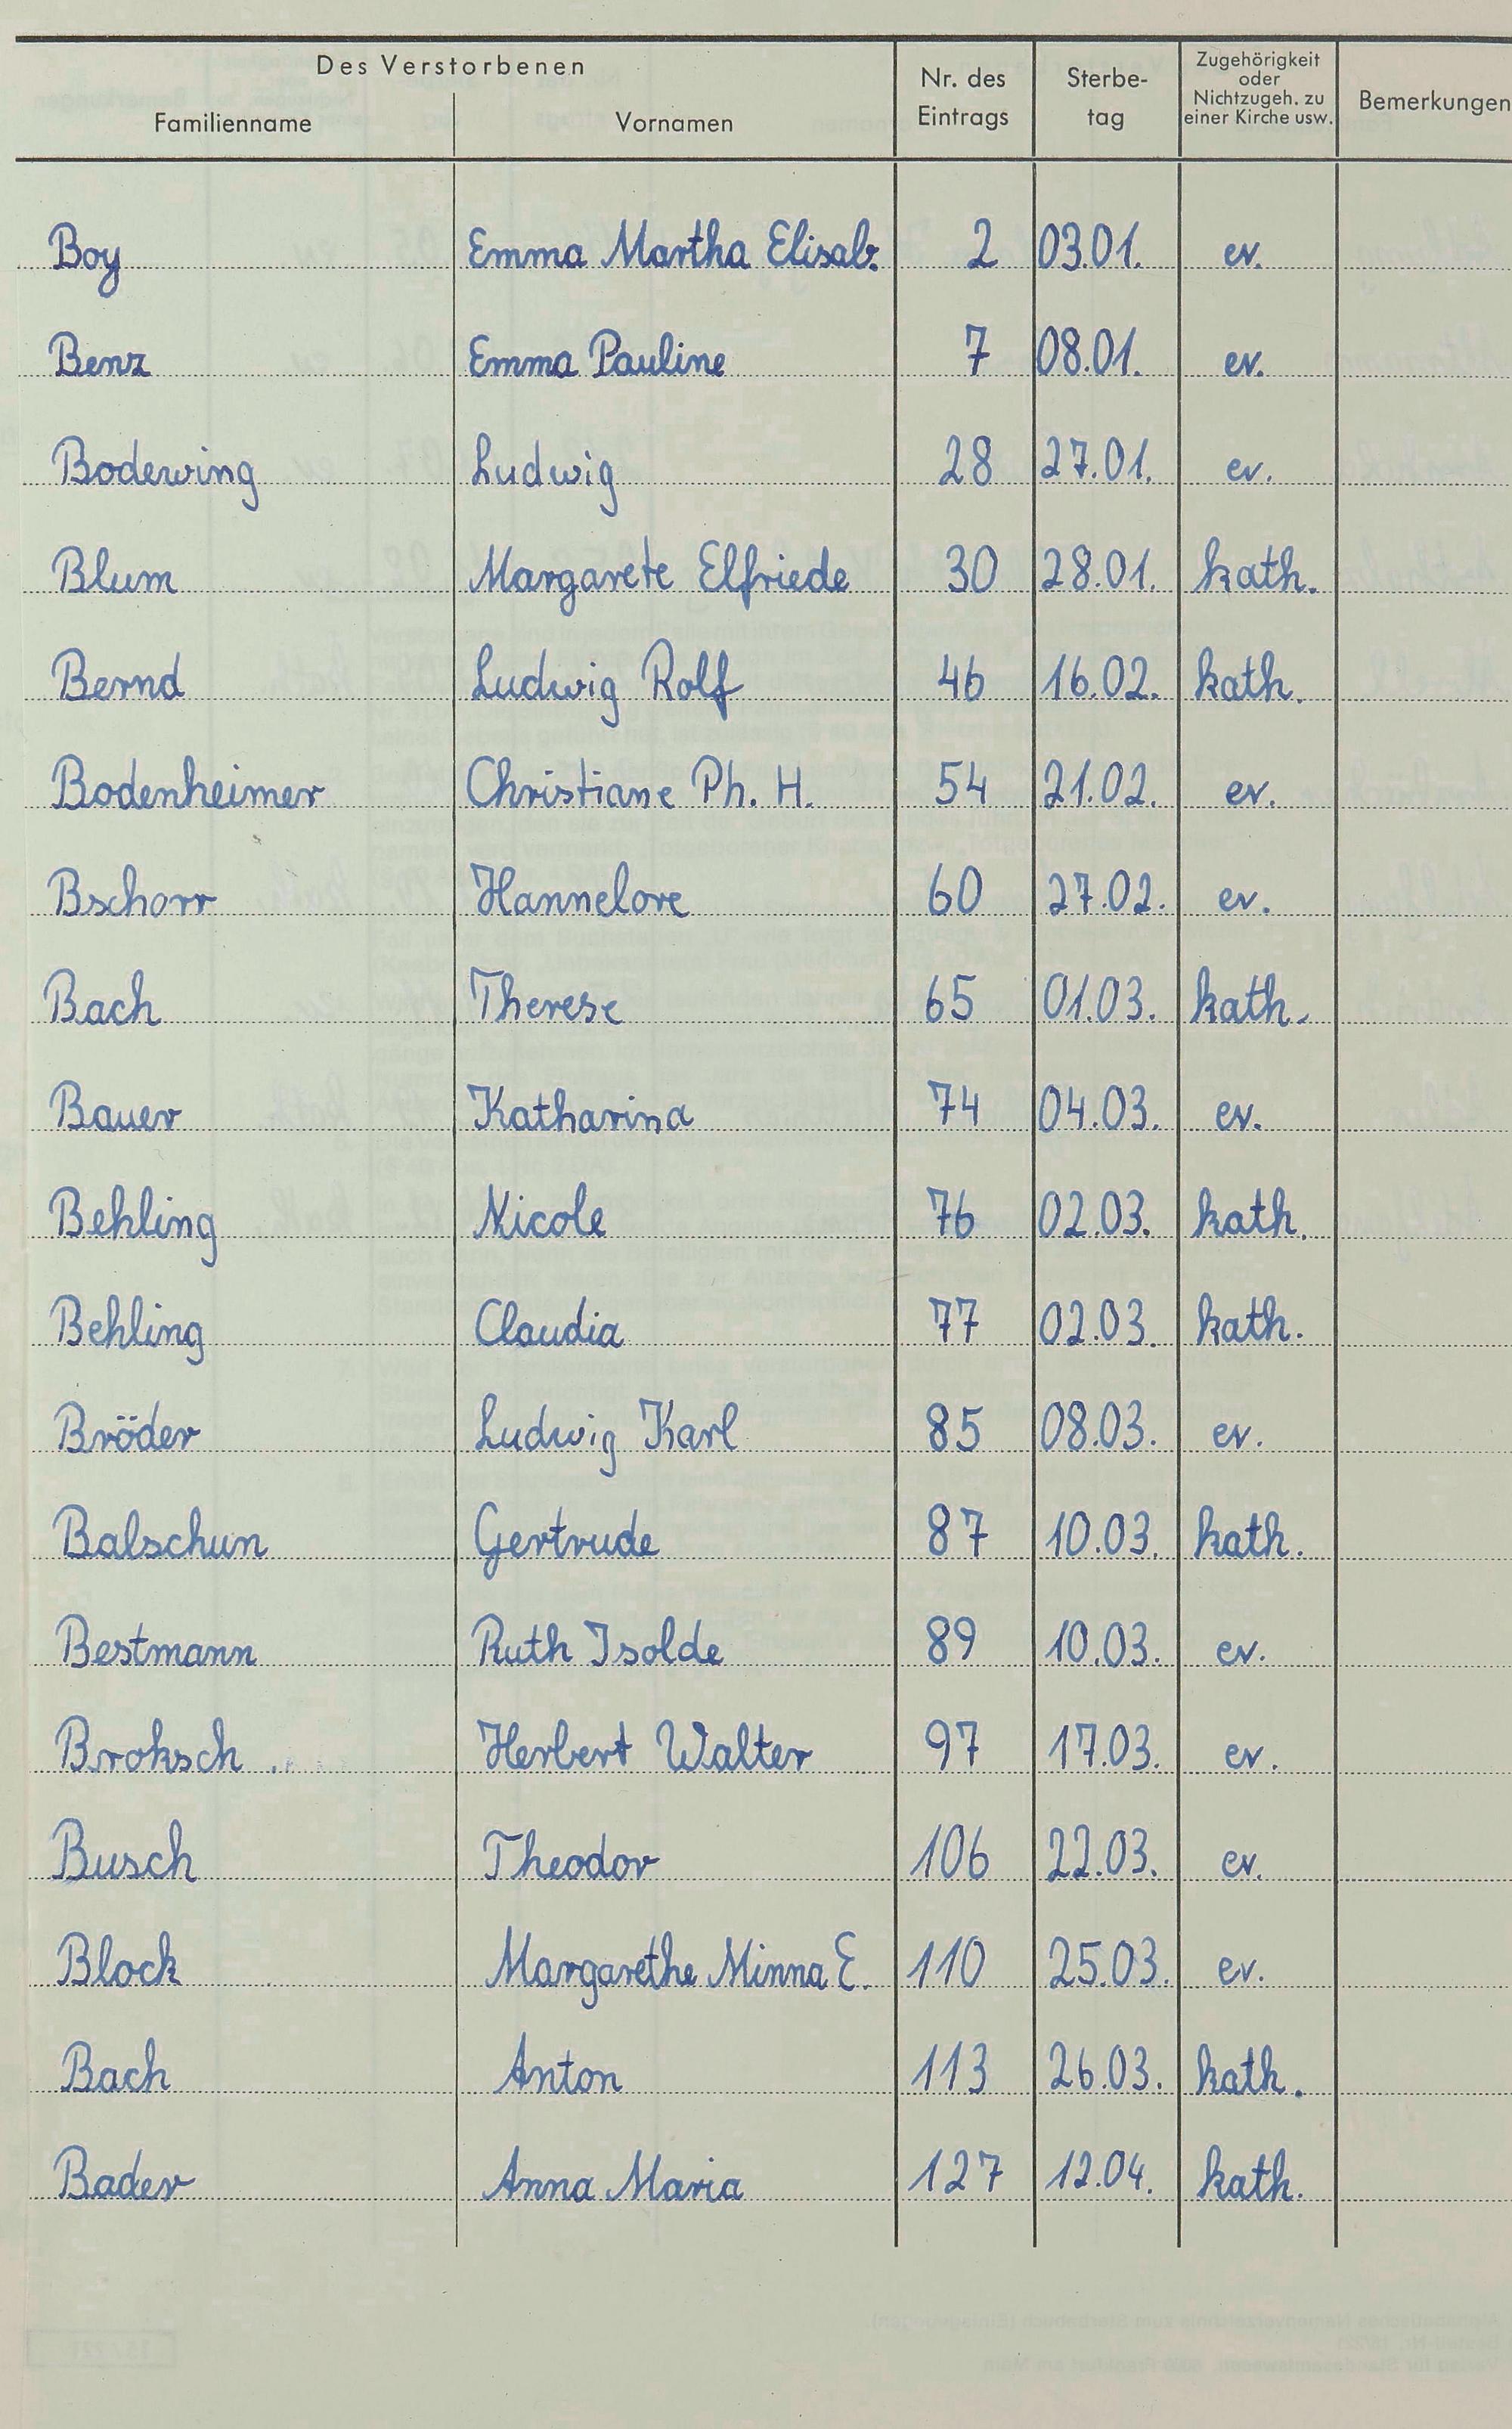 Des Verstorbenen
Familienname Vornamen Nr. des Eintrags Sterbe-tag Zugehörigkeit oder Nichtzugeh. zu einer Kirche usw. Bemerkungen
Boy Emma Martha Elisab. 2 03.01. ev.
Benz Emma Pauline 7 08.01. ev.
Bodewing Ludwig 28 27.01. ev.
Blum Margarete Elfriede 30 28.01. kath.
Bernd Ludwig Rolf 46 16.02. kath.
Bodenheimer Christiane Ph. H. 54 21.02. ev.
Bschorr Hannelore 60 27.02. ev.
Bach Therese 65 01.03. kath.
Bauer Katharina 74 04.03. ev.
Behling Nicole 76 02.03. kath.
Behling Claudia 77 02.03. kath.
Bröder Ludwig Karl 85 08.03. ev.
Balschun Gertrude 87 10.03. kath.
Bestmann Ruth Isolde 89 10.03. ev.
Broksch Herbert Walter 97 17.03. ev.
Busch Theodor 106 22.03. ev.
Block Margarethe Minna E. 110 25.03. ev.
Bach Anton 113 26.03. kath.
Bader Anna Maria 127 12.04. kath.